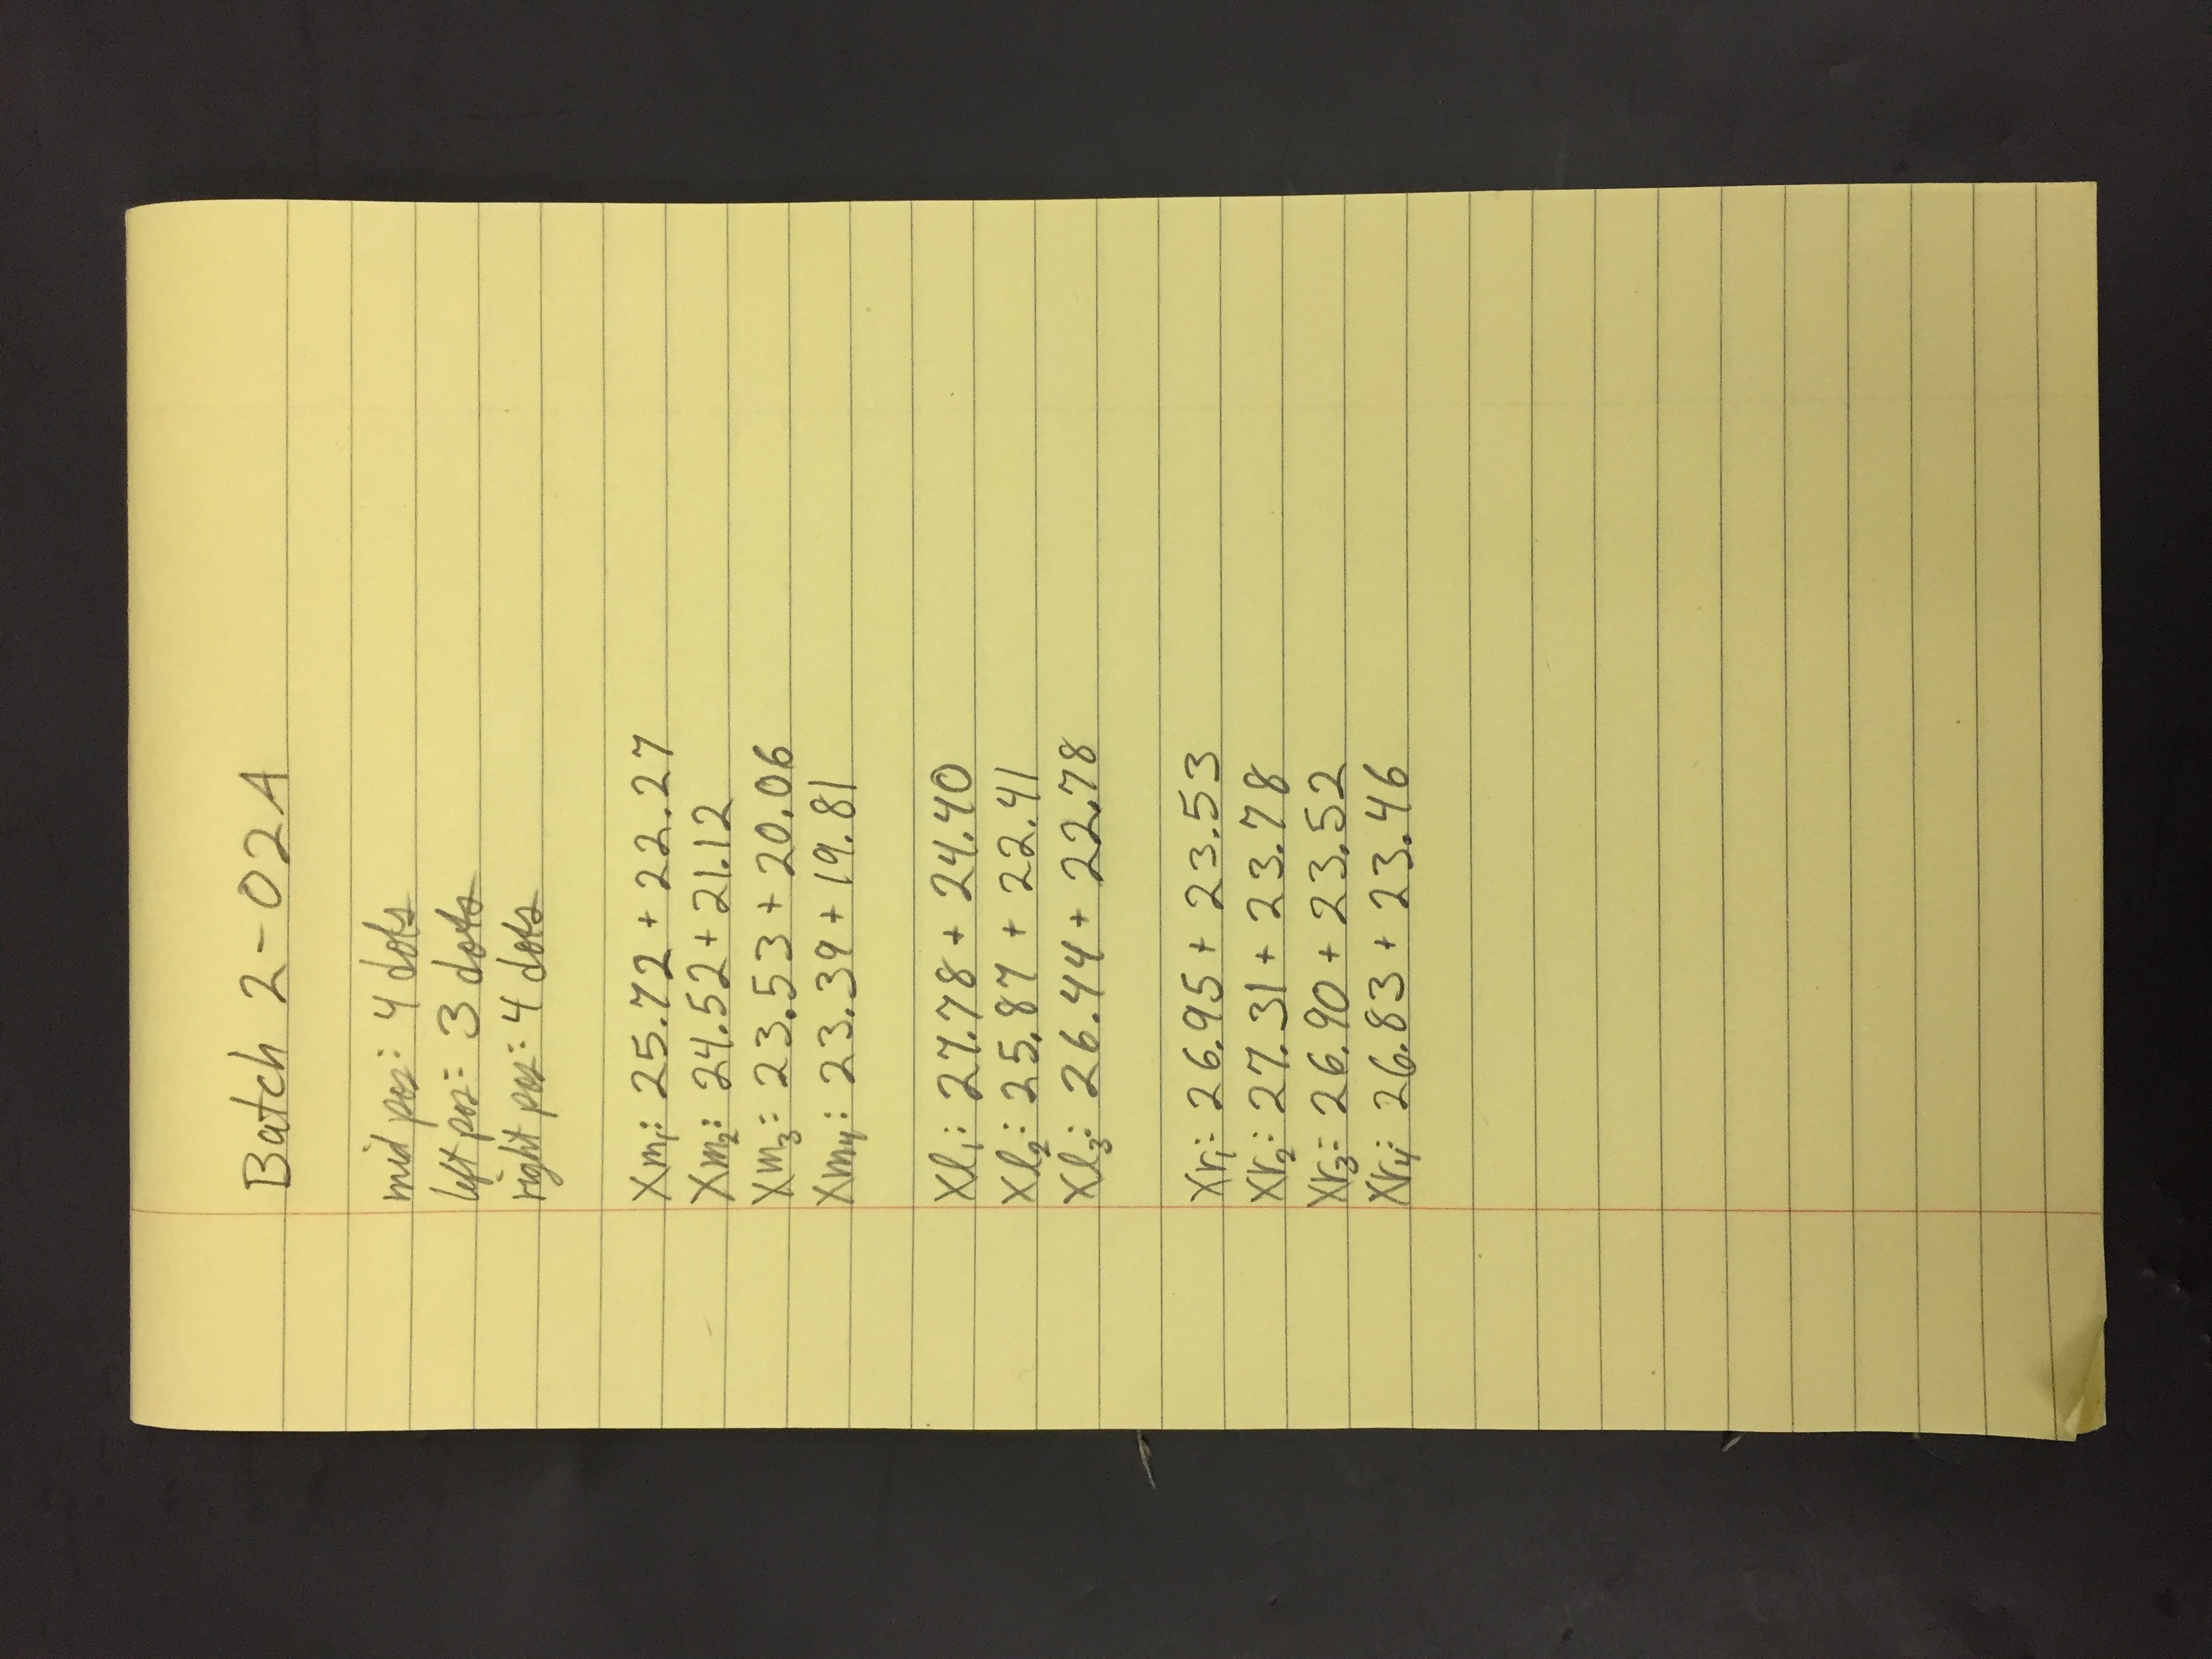 Batch 2-02A
mid pos: 4 dots
left pos: 3 dots
right pos: 4 dots
Xm₁: 25.72 + 22.27
Xm₂: 24.52 + 21.12
Xm₃: 23.53 + 20.06
Xm₄: 23.39 + 19.81
Xl₁: 27.78 + 24.40
Xl₂: 25.87 + 22.41
Xl₃: 26.44 + 22.78
Xr₁: 26.95 + 23.53
Xr₂: 27.31 + 23.78
Xr₃: 26.90 + 23.52
Xr₄: 26.83 + 23.46